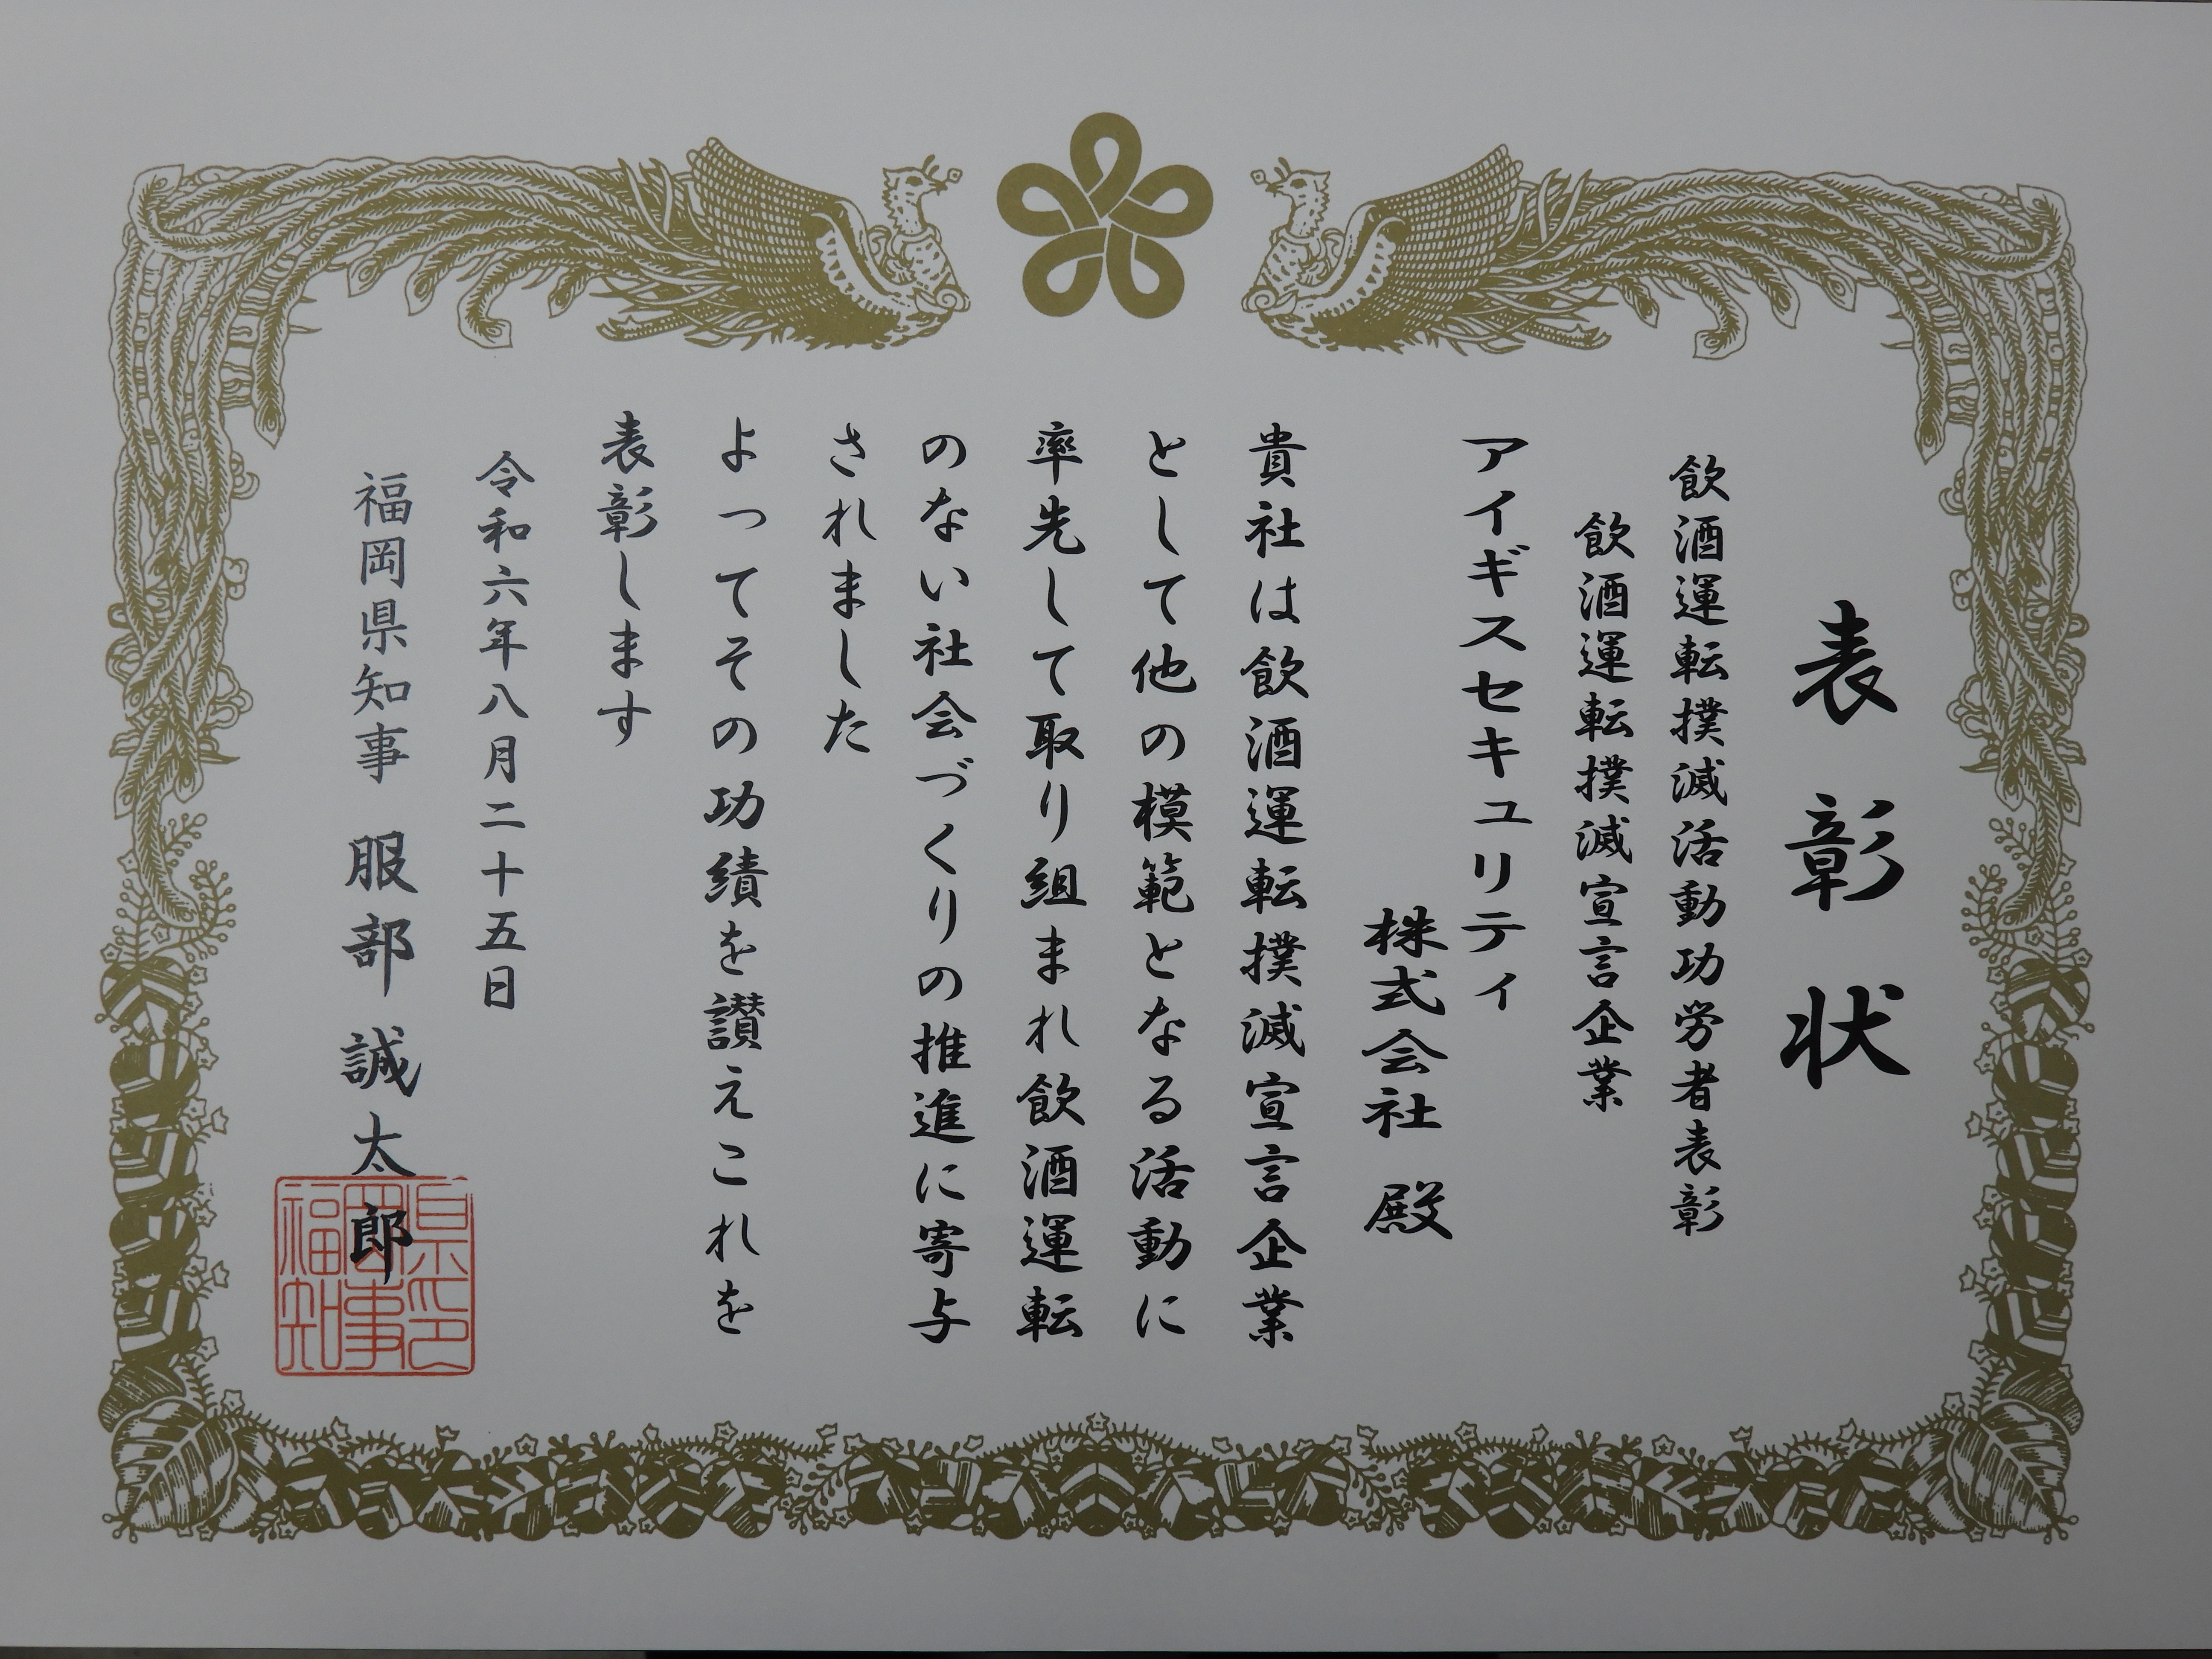 表彰状
飲酒運転撲滅活動功労者表彰
飲酒運転撲滅宣言企業
アイギスセキュリティ
株式会社 殿
貴社は飲酒運転撲滅宣言企業
として他の模範となる活動に
率先して取り組まれ飲酒運転
のない社会づくりの推進に寄与
されました
よってその功績を讃えこれを
表彰します
令和六年八月二十五日
福岡県知事 服部誠太郎
福岡県知事印